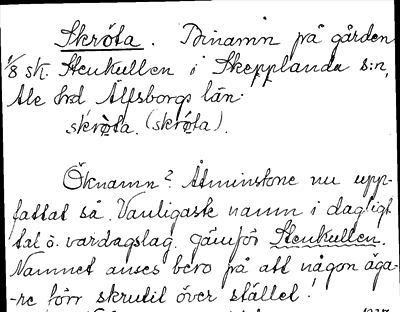 Skrôta. Binamn på gården
1/8 sk. Stenkullen i Skepplanda s:n,
Ale hrd Älfsborgs län.
skrota. (skrota).
Öknamn? Åtminstone nu upp-
fattat så. Vanligaste namn i dagligt
tal o. vardagslag. Jämför Stenkullen.
Namnet anses bero på att någon äga-
-re förr skrutit över stället!